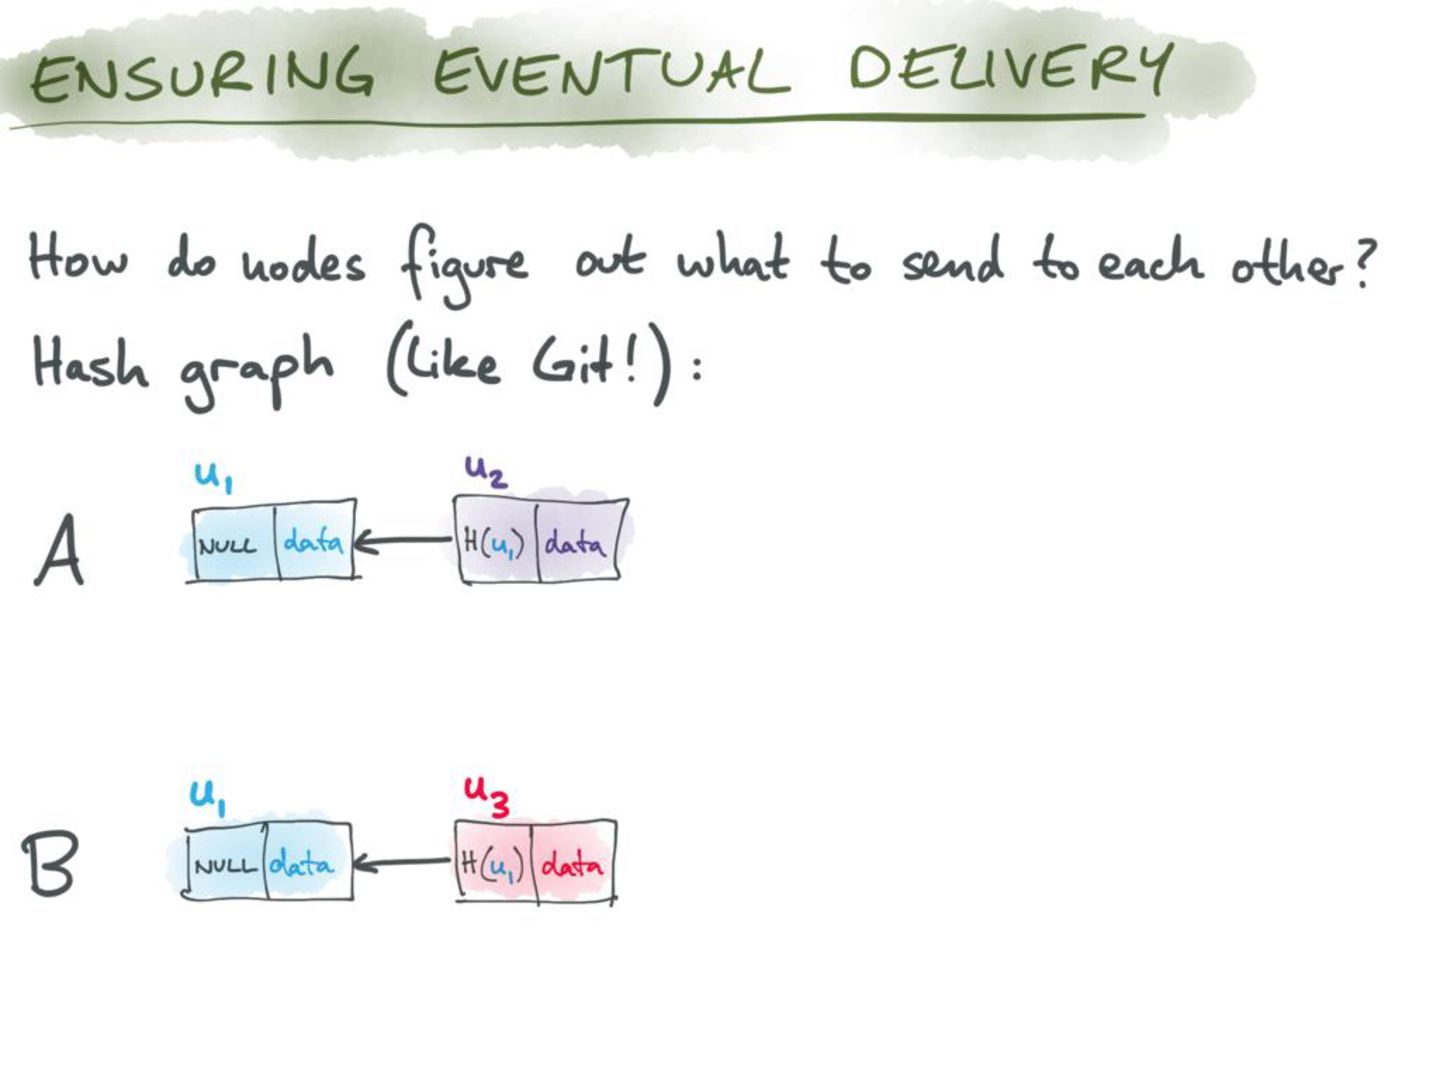 ENSURING EVENTUAL DELIVERY
How do nodes figure out what to send to each other?
Hash graph (like Git!):
u₁ u₂
A NULL data H(u₁) data
u₁ u₃
B NULL data H(u₁) data